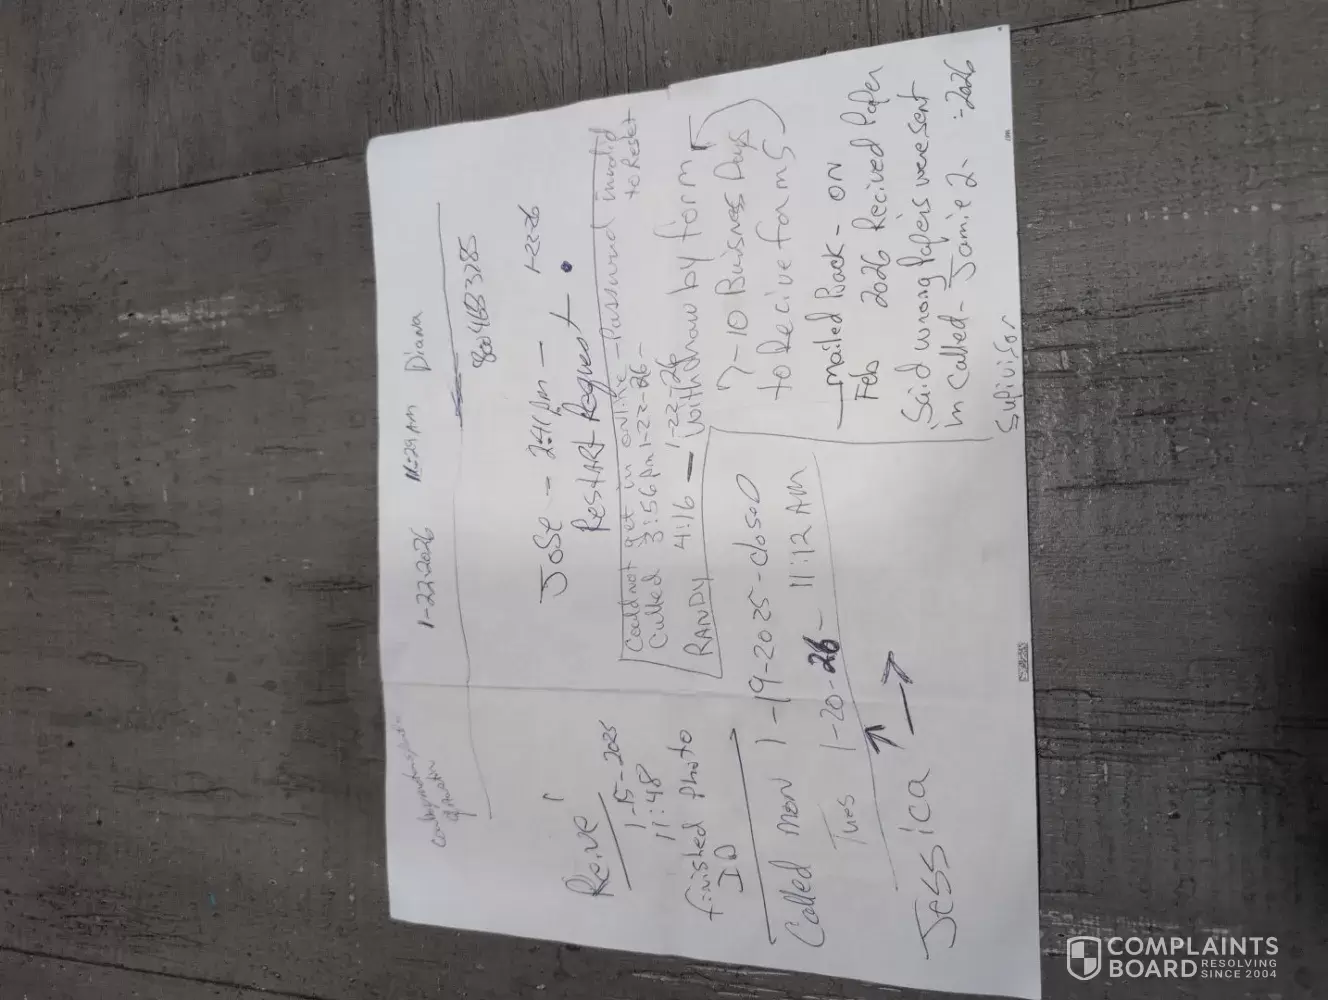 1-22-2026 11:29 AM Diana
8004883285
Reive
1-15-2025
11:48
finished Photo
ID
Jose - 2:41 pm - 1-22-26
Restart Request
Could not get in online - Password invalid
to Reset
Called 3:56 pm 1-22-26 -
RANDY 4:16 - 1-22-26
Withdraw by form
7-10 Buisnes Days
to Recive forms
Called mon 1-19-2025 - closeD
Tues 1-20-26 - 11:12 AM
Jessica
mailed Back - on
Feb 2026 Recived Paper
Said wrong Papers were sent
in called - Jamie 2- -2026
Supivisor
COMPLAINTS
BOARD RESOLVING
SINCE 2004